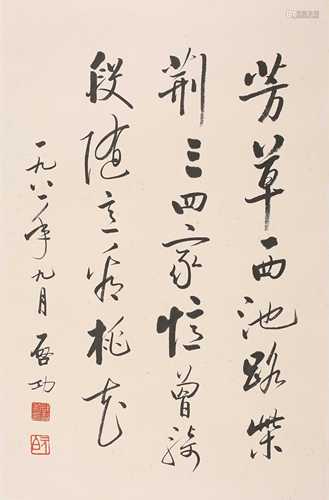 芳草西池路柴
荆三四家忆曾骑
段随意看桃花
一九八一年九月 启功